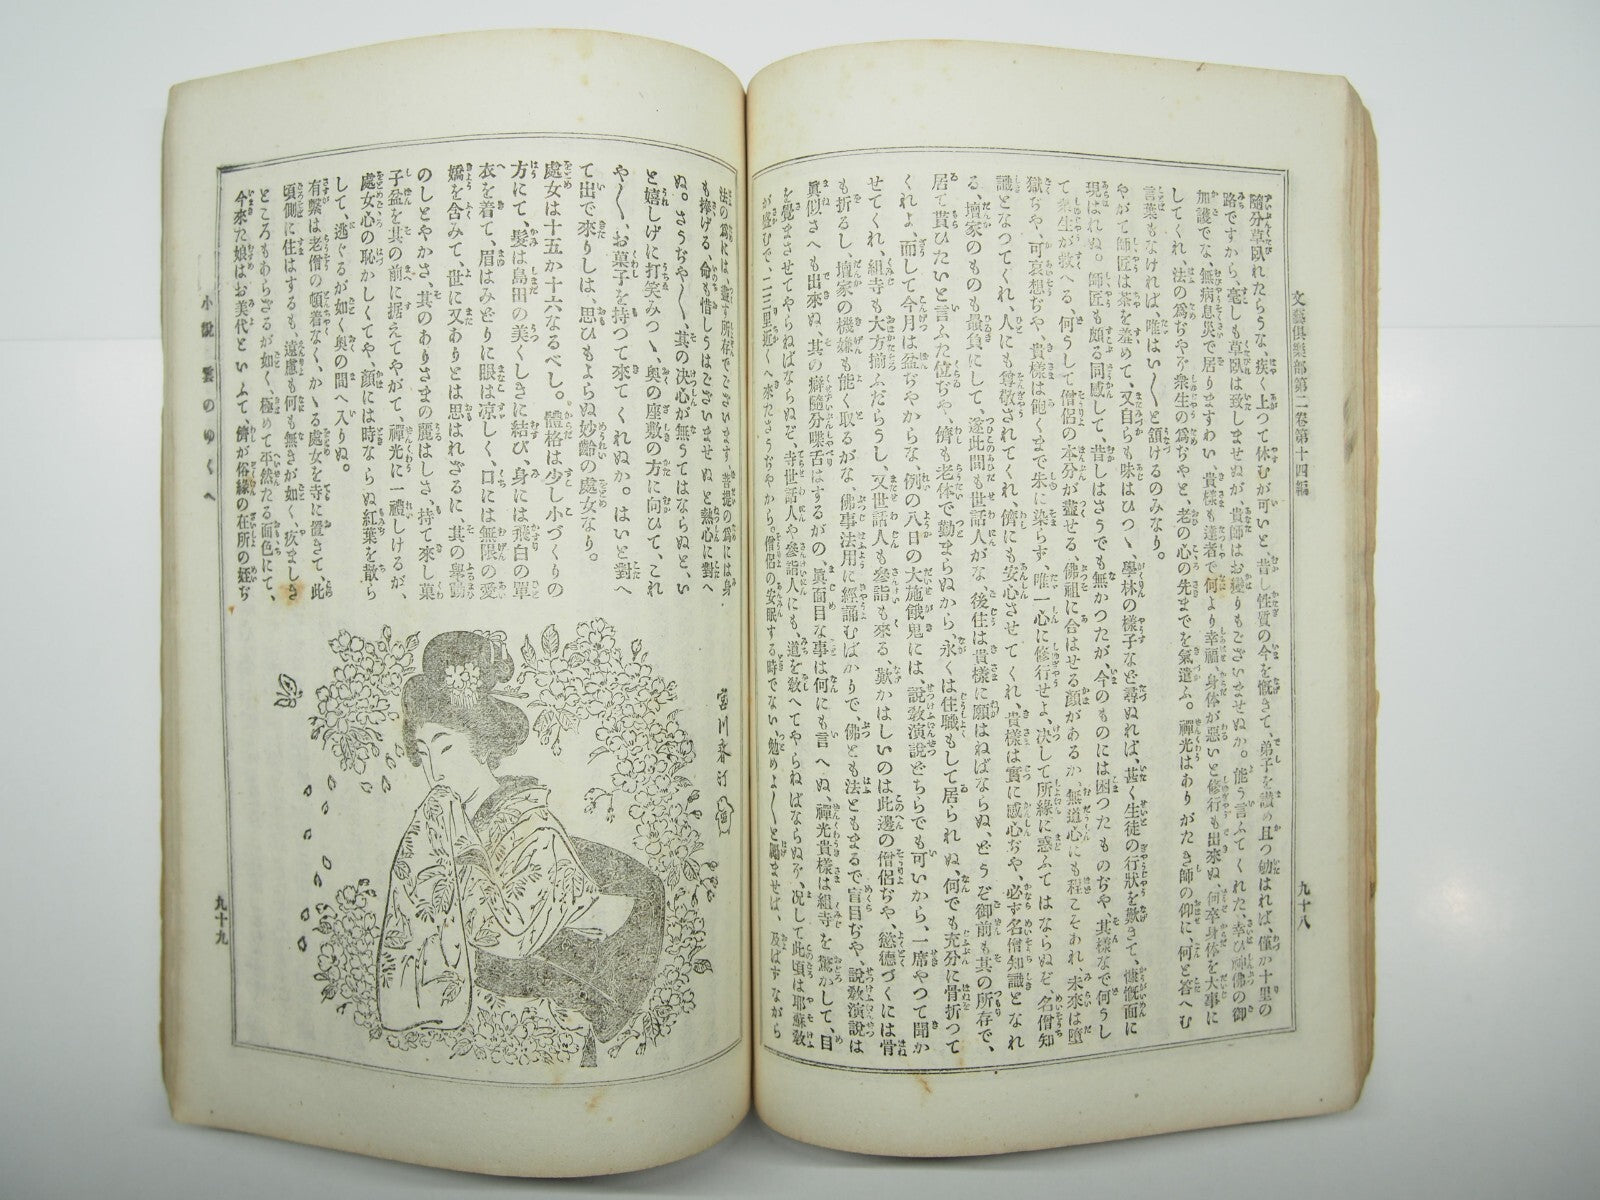 文藝倶樂部第二卷第十四編
九十八
隨分草臥れたらうな、疾く上つて休むが可いと、昔し性質の今を慨きて、弟子を讃め且つ勉はれば、僅か十里の
路ですから、毫しも草臥は致しませぬが、貴師はお變りもございませぬか。能う言ふてくれた、幸ひ神佛の御
加護でな、無病息災で居りますわい、貴樣も達者で何より幸福、身体が惡いと修行も出來ぬ、何卒身体を大事に
してくれ、法の爲ぢや衆生の爲ぢやと、老の心の先までを氣遣ふ。禪光はありがたき師の仰に、何と答へむ
言葉もなければ、唯はい〳〵と頷けるのみなり。
やがて師匠は茶を羞めて、又自らも味はひつゝ、學林の樣子など尋ぬれば、甚く生徒の行狀を歎きて、慷慨面に
現はれぬ。師匠も頗る同感して、昔しはさうでも無かつたが、今のものには困つたものぢや、其樣なで何うし
て衆生が救へる、何うして僧侶の本分が盡せる、佛祖に合はせる顔があるか、無道心にも程こそあれ、未來は墮
獄ぢや、可哀想ぢや、貴樣は飽くまで朱に染らず、唯一心に修行せよ、决して所緣に惑ふてはならぬぞ、名僧知
識となつてくれ、人にも尊敬されてくれ、儕にも安心させてくれ、貴樣は實に感心ぢや、必ず名僧知識となれ
る、壇家のものも最負にして、遂此間も世話人がな、後住は貴樣に願はねばならぬ、どうぞ御前も其の所存で、
居て貰ひたいと言ふた位ぢや、儕も老体で勤まらぬから、永くは住職もして居られぬ、何でも充分に骨折つて
くれよ、而して今月は盆ぢやからな、例の八日の大施餓鬼には、說敎演說どちらでも可いから、一席やつて聞か
せてくれ、組寺も大方揃ふだらうし、又世話人も參詣も來る、歎かはしいのは此邊の僧侶ぢや、慾德づくには骨
も折るし、壇家の機嫌も能く取るがな、佛事法用に經誦むばかりで、佛とも法ともまるで盲目ぢや、說敎演說は
眞似さへも出來ぬ、其の癖隨分喋舌はするがの、眞面目な事は何にも言へぬ、禪光貴樣は組寺を驚かして、目
を覺まさせてやらねばならぬぞ、寺世話人や參詣人にも、道を敎へてやらねばならぬぞ、况して此頃は耶蘇敎
が盛むで、二三里近くへ來たさうぢやから。僧侶の安眠する時でない、勉めよ〳〵と勵ませば、及ばずながら
法の爲には、盡す所存でございます 菩提の爲には身
も捧げる、命も惜しうはございませぬと熱心に對へ
ぬ。さうぢや〳〵、其の决心が無うてはならぬと、い
と嬉しげに打笑みつゝ、奧の座敷の方に向ひて、これ
や〳〵、お菓子を持つて來てくれぬか。はいと對へ
て出で來りしは、思ひもよらぬ妙齡の處女なり。
處女は十五か十六なるべし。體格は少し小づくりの
方にて、髮は島田の美くしきに結び、身には飛白の單
衣を着て、眉はみどりに眼は凉しく、口には無限の愛
嬌を含みて、世に又ありとは思はれざるに、其の擧動
のしとやかさ、其のありさまの麗はしさ、持て來し菓
子盆を其の前に据えてやがて、禪光に一禮しけるが、
處女心の恥かしくてや、顔には時ならぬ紅葉を散ら
して、逃ぐるが如く奧の間へ入りぬ。
有繫は老僧の頓着なく、かゝる處女を寺に置きて 此
頃側に住はするも、遠慮も何も無きが如く、疚ましき
ところもあらざるが如く、極めて平然たる面色にて、
今來た娘はお美代といふて、儕が俗緣の在所の姪ぢ
宮川春汀
小說 雲のゆくへ
九十九